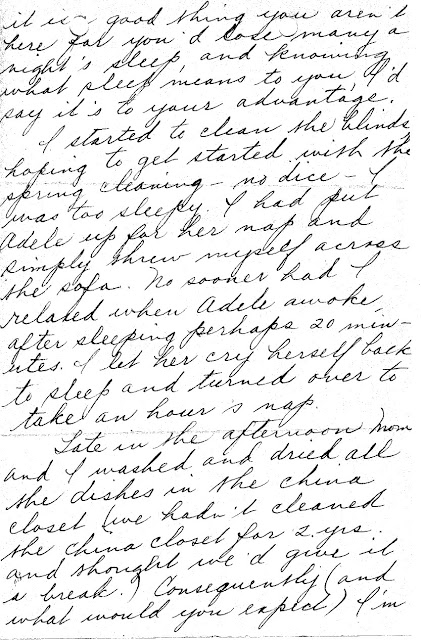 it is - good thing you aren't
here for you'd lose many a
night's sleep, and knowing
what sleep means to you, I'd
say it's to your advantage.
I started to clean the blinds,
hoping to get started with the
spring cleaning - no dice - I
was too sleepy. I had put
Adele up for her nap and
simply threw myself across
the sofa. No sooner had I
relaxed when Adele awoke,
after sleeping perhaps 20 min-
utes. I let her cry herself back
to sleep and turned over to
take an hour's nap.
Late in the afternoon Mom
and I washed and dried all
the dishes in the china
closet (we hadn't cleaned
the china closet for 2 yrs.
and thought we'd give it
a break.) Consequently (and
what would you expect) I'm